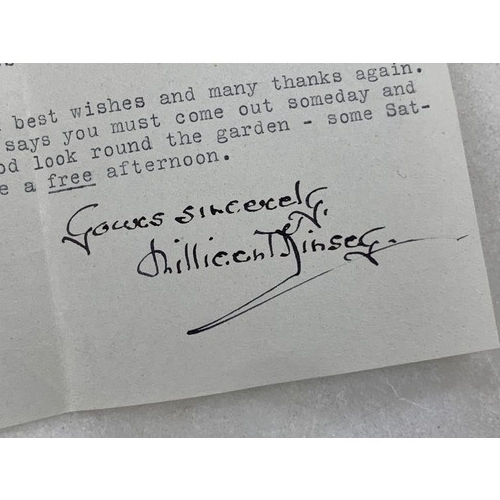 best wishes and many thanks again.
says you must come out someday and
od look round the garden - some Sat-
e a free afternoon.
Yours sincerely,
Millicent Kinsey.